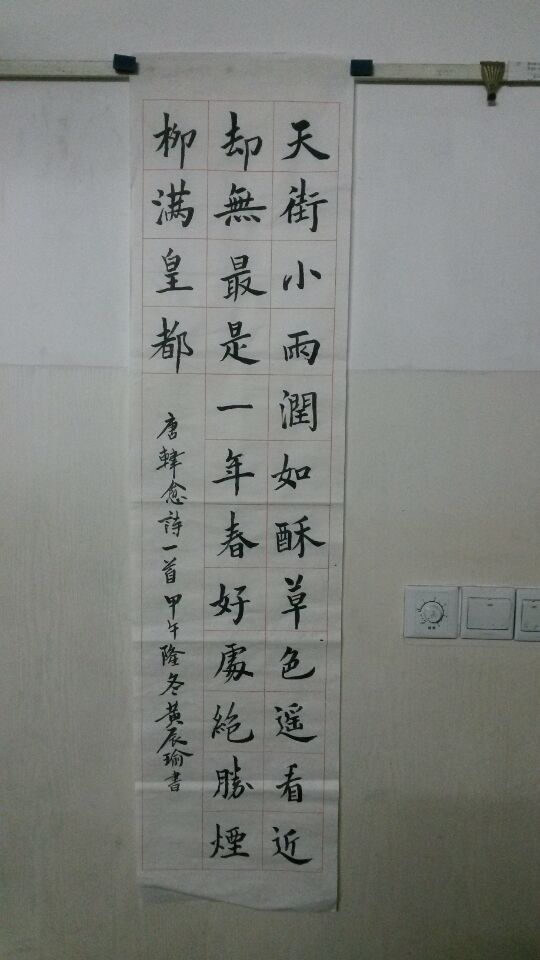 天街小雨潤如酥草色遥看近
却無最是一年春好處絶勝煙
柳满皇都
唐韓愈詩一首甲午隆冬黄辰瑜書